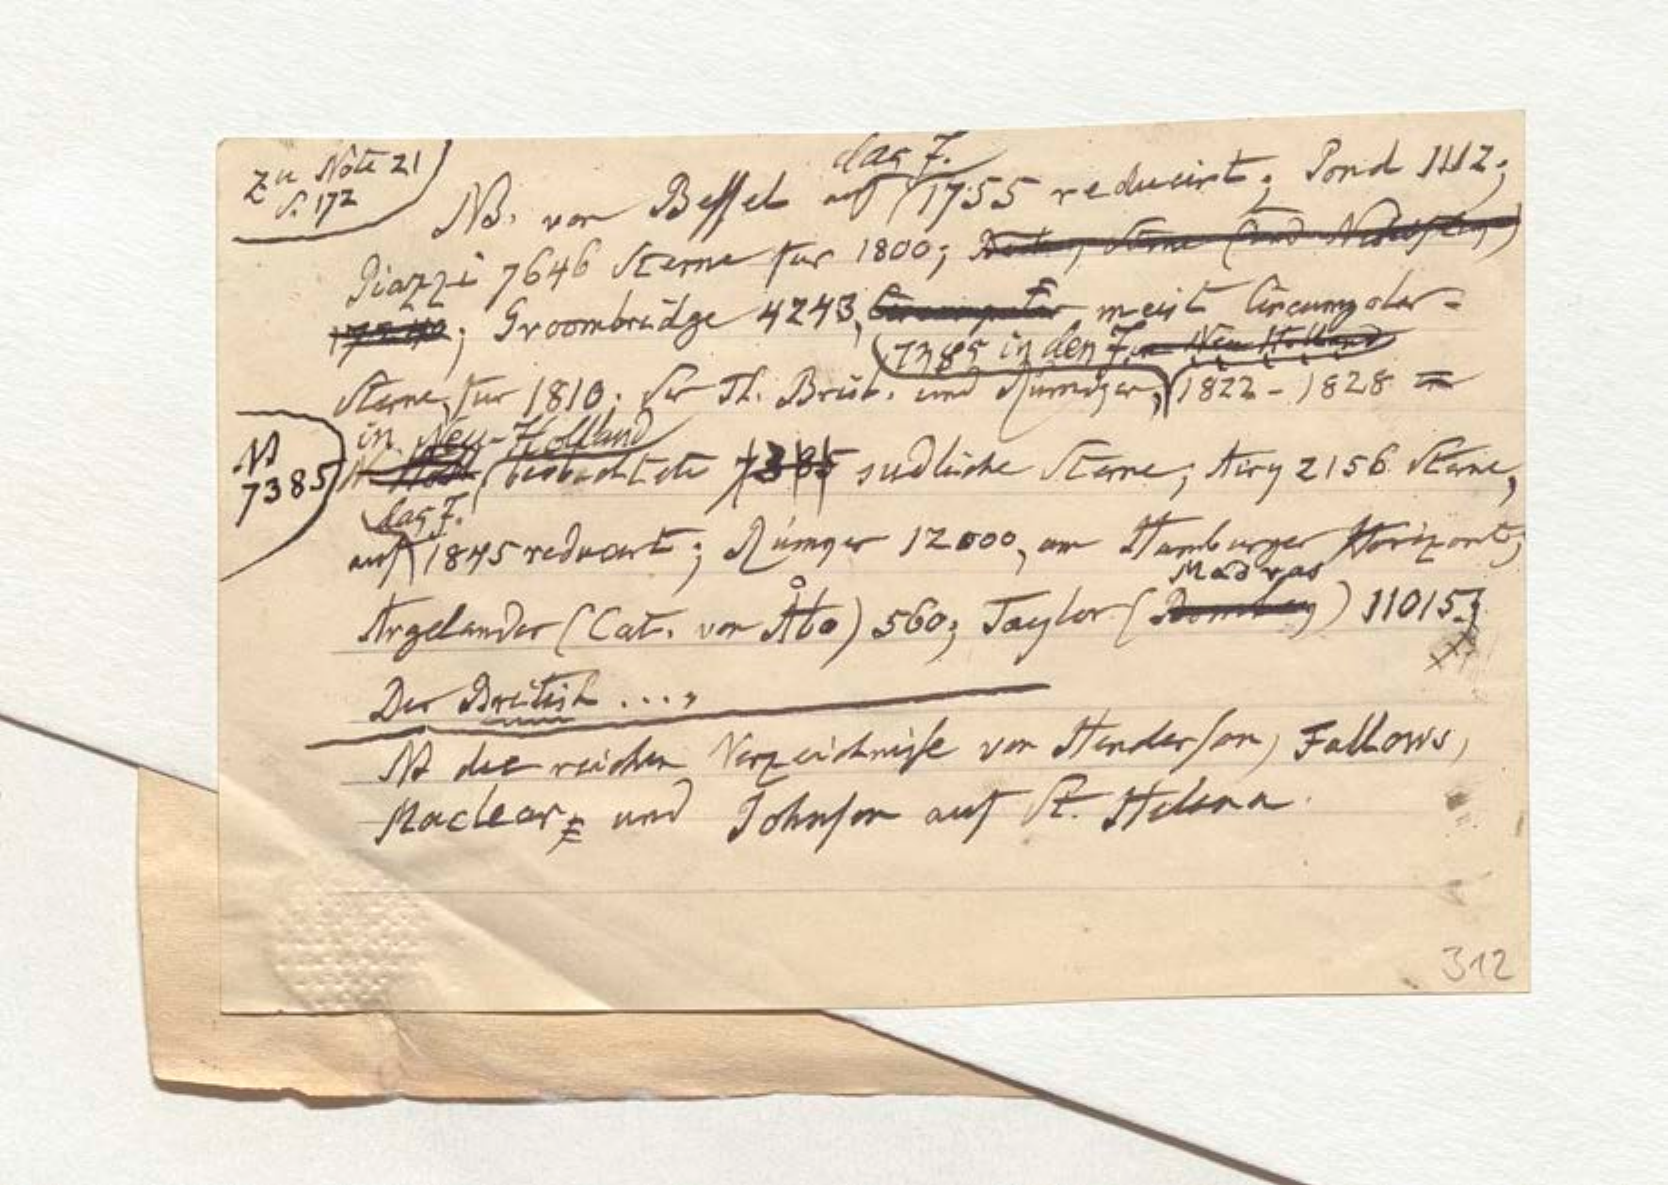 Zu Note 21
S. 172
das J.
NB. von Bessel auf 1755 reducirt; Pond 1112;
Piazzi 7646 Sterne für 1800;
Groombridge 4243, meist Circumpolar-
7385 in den J. in Neu Holland
Sterne, für 1810. Sir Th. Brisb. und Rümker, 1822-1828
in Neu-Holland
NB
7385
beobachtete 7385 südliche Sterne; Airy 2156 Sterne,
das J.
auf 1845 reducirt; Rümker 12000, am Hamburger Horizont;
Madras
Argelander (Cat. von Åbo) 560; Taylor (Bombay) 11015;
Der British ....
NB die reichen Verzeichnisse von Henderson, Fallows,
Maclear, und Johnson auf St. Helena.
312